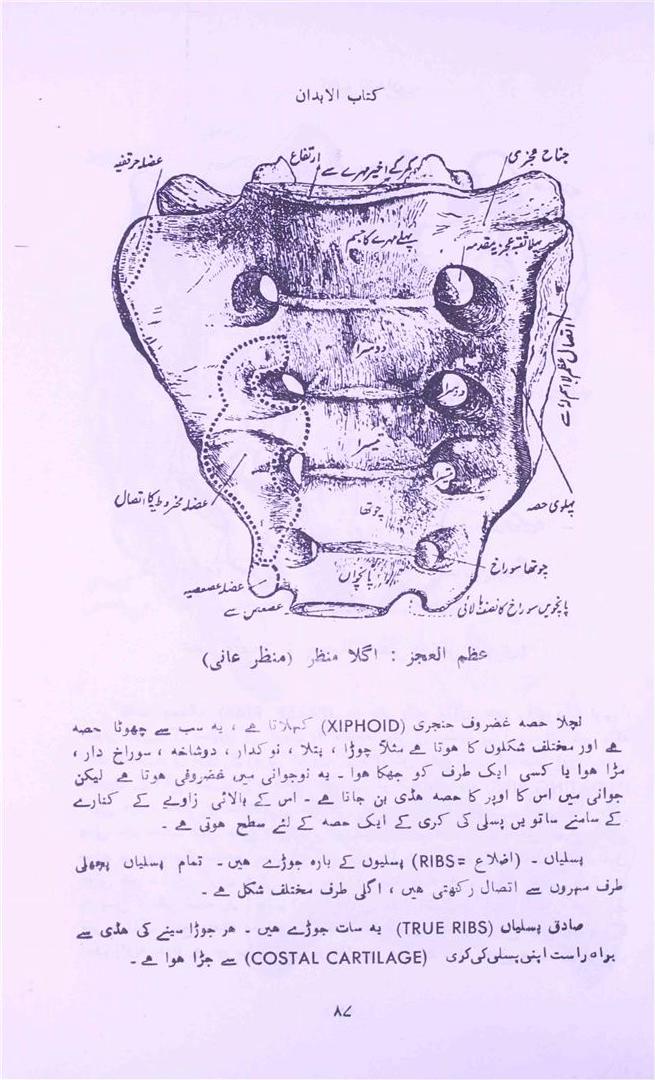 کتاب الابدان
عضلہ حرقفیہ
ارتفاع
کمر کے اخیر مہرے سے
جناح عجزی
پہلے مہرے کا جسم
پہلا ثقبہ عجزیہ مقدمہ
دوسرا
اتصال عظم لا اسم لہ سے
تیسرا
پہلوی حصہ
عضلہ مخروطیہ کا اتصال
چوتھا
چوتھا سوراخ
پانچواں
عضلہ عصعصیہ
عصعص سے
پانچویں سوراخ کا نصف بالائی
عظم العجز : اگلا منظر (منظر عانی)
نچلا حصہ غضروف حنجری (XIPHOID) کہلاتا ہے ، یہ سب سے چھوٹا حصہ
ہے اور مختلف شکلوں کا ہوتا ہے مثلاً چوڑا ، پتلا ، نوکدار ، دوشاخہ ، سوراخ دار ،
مڑا ہوا یا کسی ایک طرف کو جھکا ہوا ۔ یہ نوجوانی میں غضروفی ہوتا ہے لیکن
جوانی میں اس کا اوپر کا حصہ ھڈی بن جاتا ہے ۔ اس کے بالائی زاویے کے کنارے
کے سامنے ساتویں پسلی کی کری کے ایک حصہ کے لئے سطح ہوتی ہے ۔
پسلیاں ۔ (اضلاع =RIBS) پسلیوں کے بارہ جوڑے ھیں ۔ تمام پسلیاں پچھلی
طرف مہروں سے اتصال رکھتی ھیں ، اگلی طرف مختلف شکل ہے ۔
صادق پسلیاں (TRUE RIBS) یہ سات جوڑے ھیں ۔ ھر جوڑا سینے کی ھڈی سے
براہ راست اپنی پسلی کی کری (COSTAL CARTILAGE) سے جڑا ھوا ہے ۔
۸۷